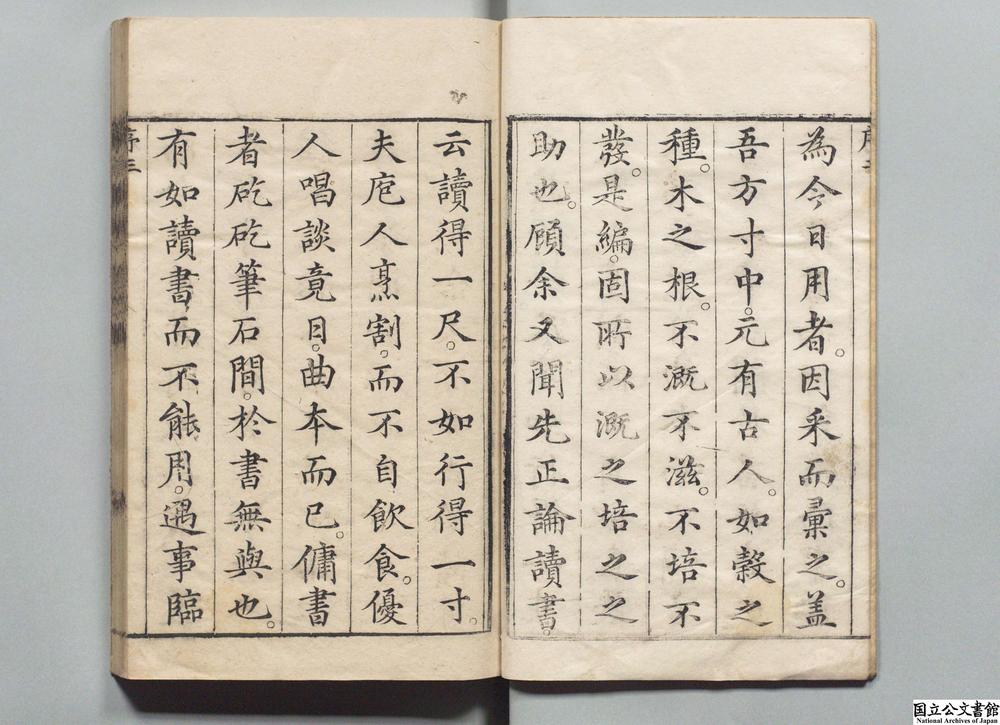 序二
為今日用者。因采而彙之。蓋
吾方寸中。元有古人。如穀之
種。木之根。不溉不滋。不培不
發。是編。固所以溉之培之之
助也。顧余又聞先正論讀書。
云讀得一尺。不如行得一寸。
夫庖人烹割。而不自飲食。優
人唱談竟日。曲本而已。傭書
者矻矻筆石間。於書無與也。
有如讀書而不能用。遇事臨
序三
国立公文書館
National Archives of Japan